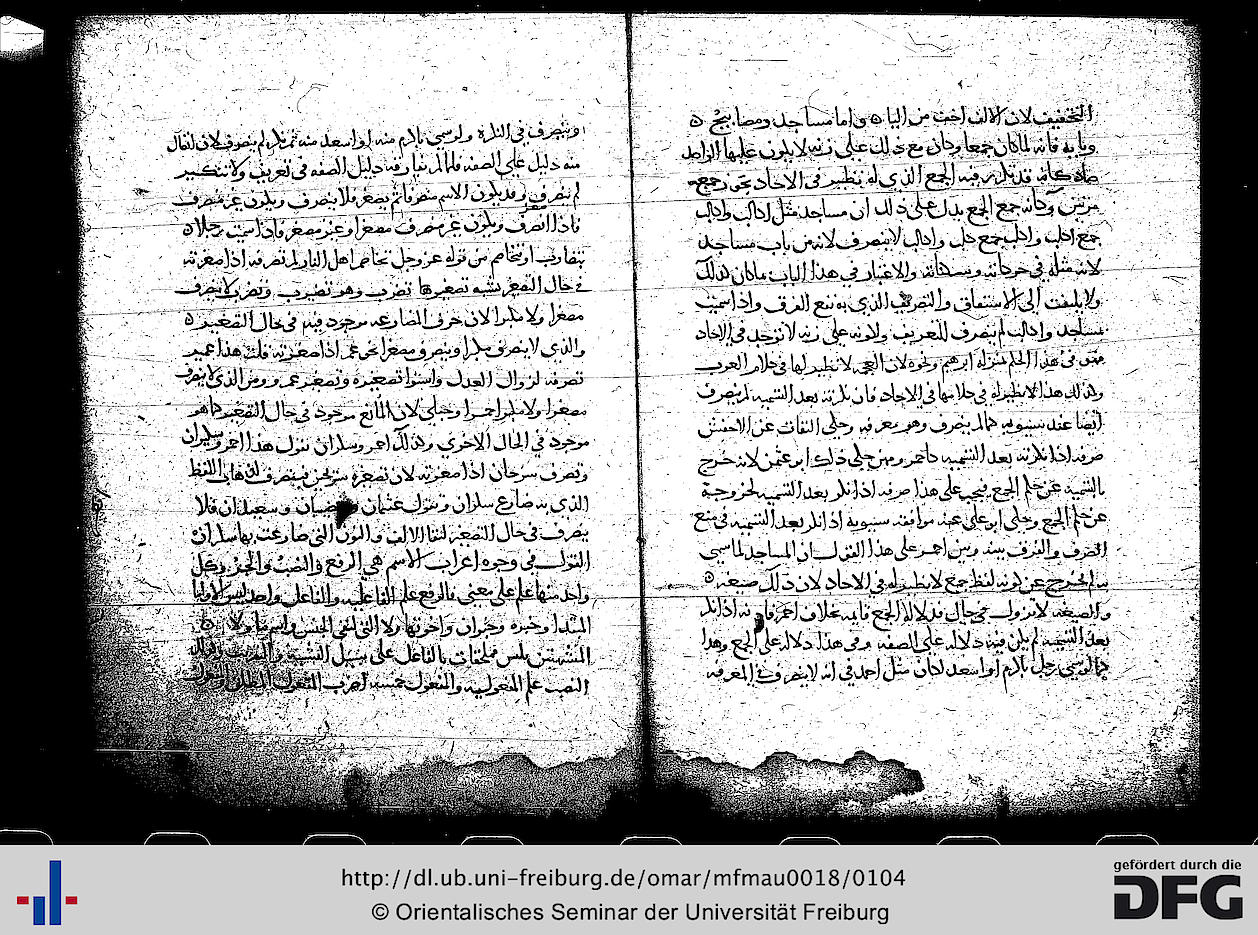 التخفيف لان الالف اخف من الياء واما مساجد ومصابيح
وبابه فانه لما كان جمعا وكان مع ذلك على زنة لا يكون عليها الواحد
صار كانه قد تكرر فيه الجمع الذي له نظير في الاحاد نحو جمع
مرتين وكانه جمع الجمع يدل على ذلك ان مساجد مثل اكالب واكالب
جمع اكلب واكلب جمع كلب واكالب لا ينصرف لانه من باب مساجد
لانه مثله في حركاته وسكناته والاعتبار في هذا الباب ما كان كذلك
ولا يلتفت الى الاشتقاق والتصريف الذي به تقع الفرق واذا سميت
بمساجد واكالب لم ينصرف للتعريف ولانه على زنة لا توجد في الاحاد
فهو في هذا الحكم بمنزلة ابرهيم ونحوه لان العجمة لا نظير لها في كلام العرب
وكذلك هذا لا نظير له في كلامها في الاحاد فان نكرته بعد التسمية لم ينصرف
ايضا عند سيبويه كما لم ينصرف وهو معرفة وحكى الثقات عن الاخفش
صرفه اذا نكرته بعد التسمية كاحمر وممن حكى ذلك ابو عثمن لانه خرج
بالتسمية عن حكم الجمع فيجب على هذا صرفه اذا نكر بعد التسمية لخروجه
عن حكم الجمع وحكى ابو علي عنه موافقة سيبويه اذا نكر بعد التسمية في منع
الصرف والفرق بينه وبين احمر على هذا القول ان المساجد لما سمي
به لم يخرج عن كونه لفظ جمع لا نظير له في الاحاد لان ذلك صيغة
والصيغة لا تزول بحال فدلالة الجمع قايمة بخلاف احمر فانه اذا نكر
بعد التسمية لم يكن فيه دلالة على الصفة وفي هذا دلالة على الجمع وهذا
كما لو سمي رجل باكرم او اسعد لكان مثل احمد في انه لا ينصرف في المعرفة
وينصرف في النكرة ولو سمي باكرم منه او اسعد منه ثم نكر لم ينصرف لان لفظ
منه دليل على الصفة فلما لم تفارقه دليل الصفة في تعريف ولا تنكير
لم ينصرف وقد يكون الاسم مصغرا فلا ينصرف ويكون غير مصغر
فاذا انصرف ويكون غير منصرف مصغرا وغير مصغر فاذا سميت رجلا
بتضارب او تخاصم من قوله عز وجل تخاصم اهل النار لم تصرفه اذا صغرته
في حال التصغير يشبه تصغيرها تضرب وهو تضيرب وتضرب لا ينصرف
مصغرا ولا مكبرا لان حرف المضارعة موجود فيه في حال التصغير
والذي لا ينصرف مكبرا وينصرف مصغرا نحو عمر اذا صغرته قلت هذا عمير
تصرفه لزوال العدل واستوا تصغيره وتصغير عمرو ومن الذي لا ينصرف
مصغرا ولا مكبرا احمر وحبلى لان المانع موجود في حال التصغير كما هو
موجود في الحال الاخرى وكذلك احمر وسكران تقول هذا احيمر وسكيران
وتصرف سرحان اذا صغرته لان تصغيره سريحين فينصرف لذهاب اللفظ
الذي به ضارع سكران وتقول عثمان وعثيمان وسعيدان فلا
ينصرف في حال التصغير لبقا الالف والنون التي ضارعت بها سكران
القول في وجوه اعراب الاسم هي الرفع والنصب والجر وكل
واحد منها علم على معنى فالرفع علم الفاعلية والفاعل واحد ليس الا واما
المبتدا وخبره وخبر ان واخواتها ولا التي لنفي الجنس واسم ما ولا
المشبهتين بليس فملحقات بالفاعل على سبيل التشبيه والتقريب وكذلك
النصب علم المفعولية والمفعول خمسة اضرب المفعول المطلق والمفعول
http://dl.ub.uni-freiburg.de/omar/mfmau0018/0104
© Orientalisches Seminar der Universität Freiburg
gefördert durch die
DFG